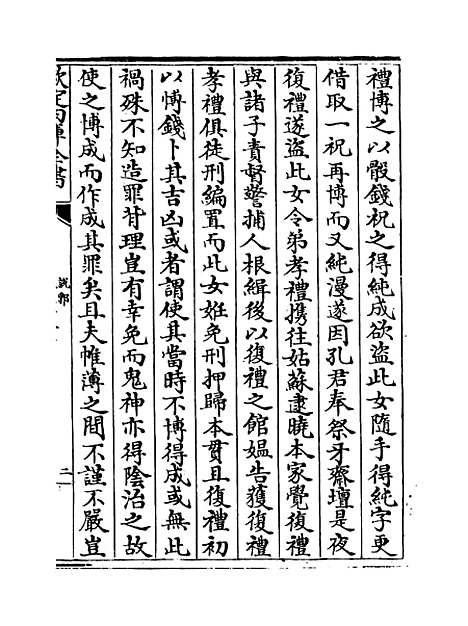 禮博之以骰錢祝之得純成欲盜此女隨手得純字更
借取一祝再博而又純漫遂因孔君奉祭牙齋壇是夜
復禮遂盜此女令弟孝禮携往姑蘇逮曉本家覺復禮
與諸子責督警捕人根緝後以復禮之館媪告獲復禮
孝禮俱徒刑編置而此女姙免刑押歸本貫且復禮初
以博錢卜其吉凶或者謂使其當時不博得成或無此
禍殊不知造罪背理豈有幸免而鬼神亦得陰治之故
使之博成而作成其罪矣且夫帷薄之間不謹不嚴豈
欽定四庫全書
說郛
二